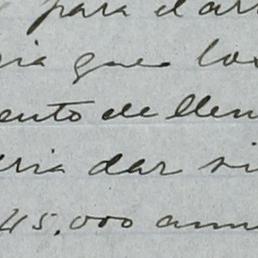 para el ar
ria que los
ento de llen
ria dar si
45.000 anu